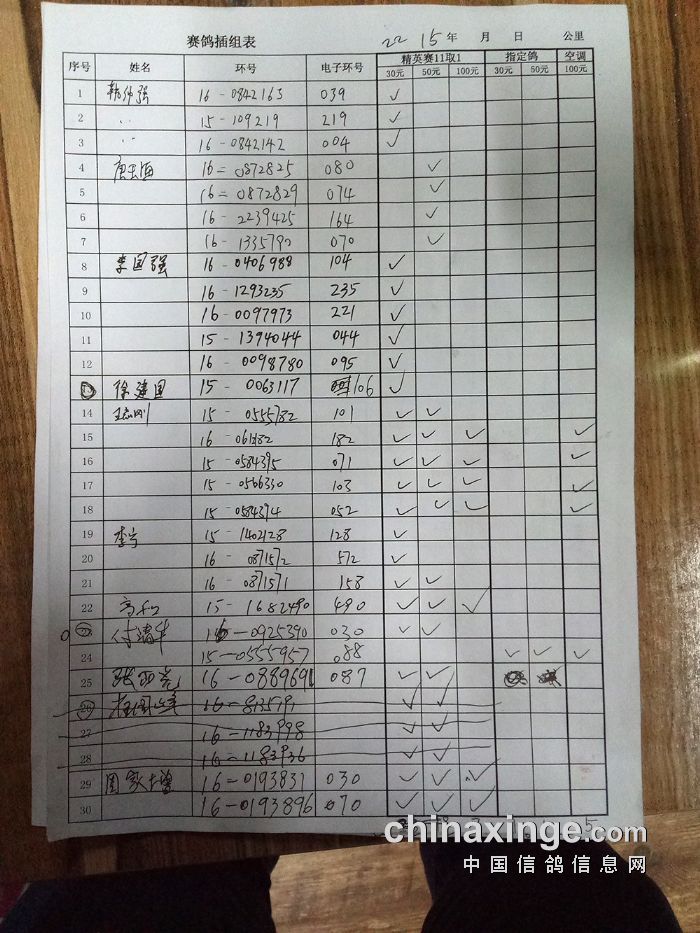 赛鸽插组表 22 15年 月 日 公里
序号 姓名 环号 电子环号 精英赛11取1 指定鸽 空调
30元 50元 100元 30元 50元 100元
1 韩伟强 16-0842163 039 ✓
2 〃 15-109219 219 ✓
3 〃 16-0842142 004 ✓
4 16=0872825 080 ✓
5 16=0872829 074 ✓
6 16-2239425 164 ✓
7 16-1335792 070 ✓
8 李国强 16-0406988 104 ✓
9 16-1293235 235 ✓
10 16-0097973 221 ✓
11 15-1394044 044 ✓
12 16-0098780 095 ✓
13 徐建国 15-0063117 106 ✓
14 王志刚 15-0555782 101 ✓ ✓
15 16-061382 182 ✓ ✓ ✓ ✓
16 15-0584395 071 ✓ ✓ ✓ ✓
17 15-0566330 103 ✓ ✓ ✓ ✓
18 15-0584394 052 ✓ ✓ ✓ ✓
19 李宁 15-1402128 128 ✓
20 16-0871572 572 ✓
21 16-0871571 158 ✓ ✓
22 15-1682490 490 ✓ ✓ ✓
16-0925390 030 ✓ ✓
24 15-0555957 088 ✓ ✓ ✓
25 16-0889691 087 ✓ ✓
26 16-813579 ✓ ✓
27 16-1183998 ✓ ✓
28 16-1183936 ✓ ✓
29 16-0193831 030 ✓ ✓ ✓
30 16-0193896 070 ✓ ✓ ✓
5
chinaxinge.com
中国信鸽信息网